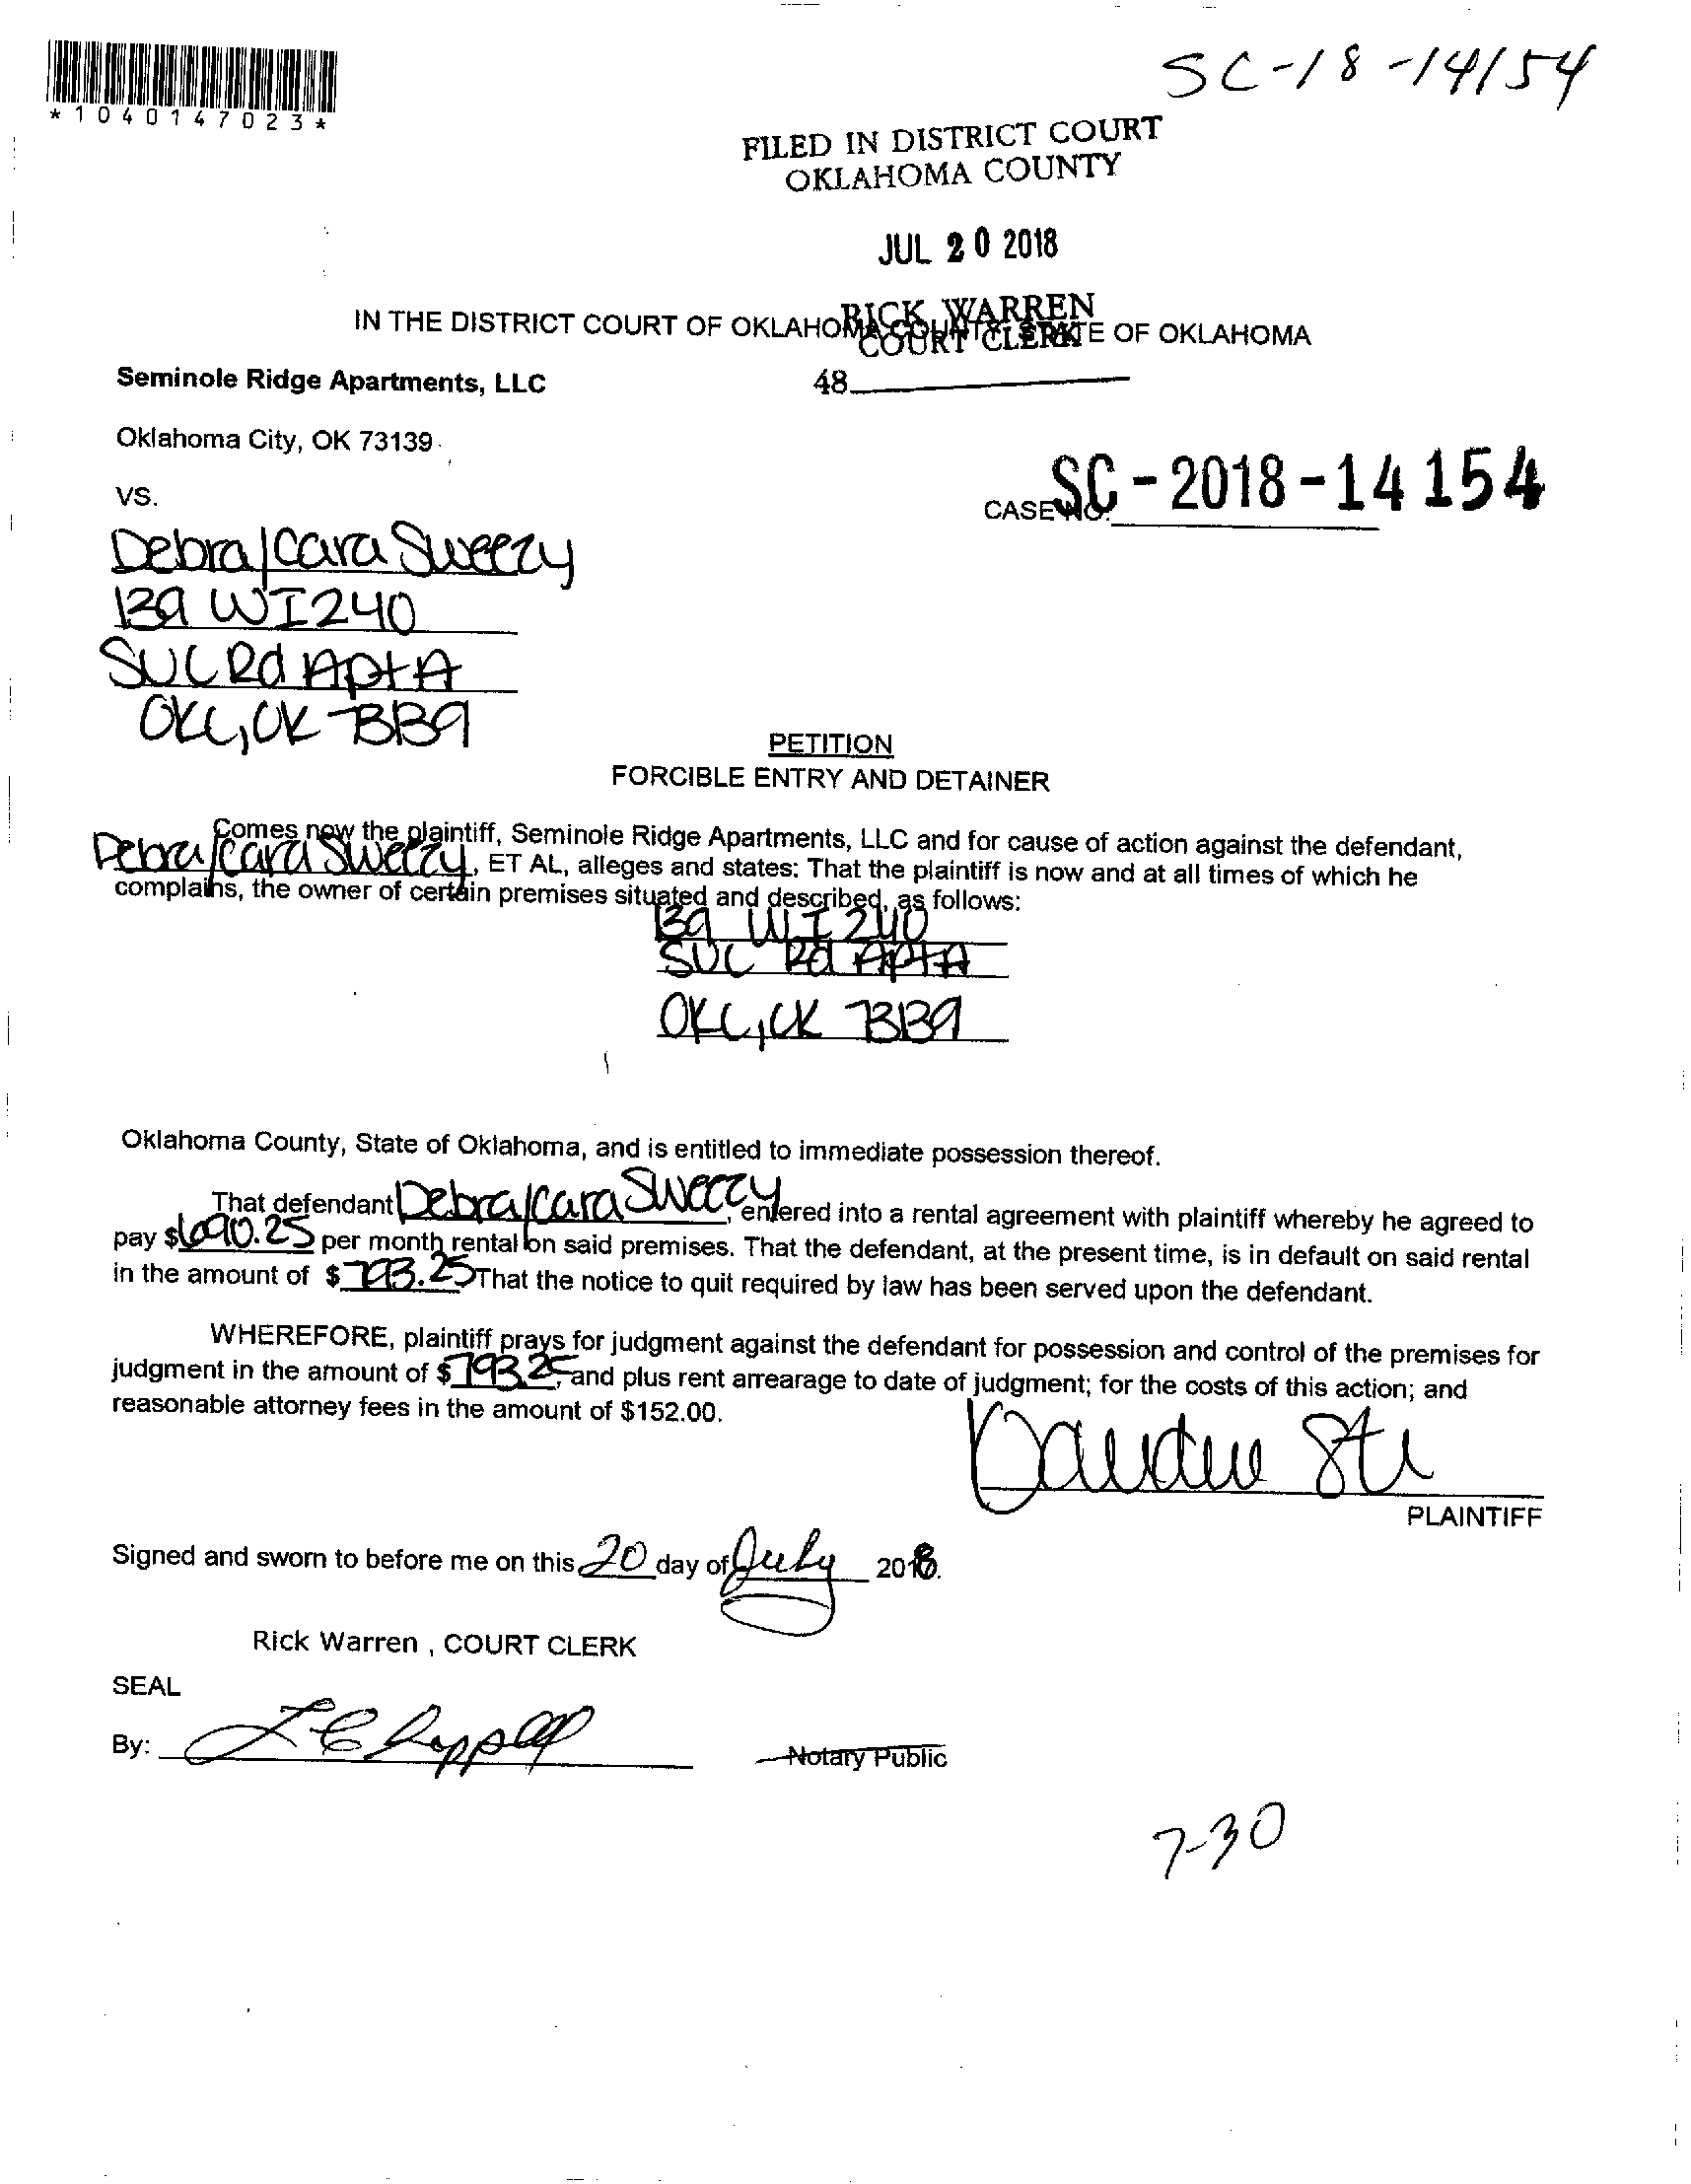 SC-18-14154
*1040147023*
FILED IN DISTRICT COURT
OKLAHOMA COUNTY
JUL 20 2018
RICK WARREN
COURT CLERK
IN THE DISTRICT COURT OF OKLAHOMA COUNTY, STATE OF OKLAHOMA
Seminole Ridge Apartments, LLC
48
Oklahoma City, OK 73139
VS.
CASE NO. SC-2018-14154
Debra/Cara Sweezy
139 W I 240
SVC Rd Apt A
OKC, OK 73139
PETITION
FORCIBLE ENTRY AND DETAINER
Comes now the plaintiff, Seminole Ridge Apartments, LLC and for cause of action against the defendant,
Debra/Cara Sweezy, ET AL, alleges and states: That the plaintiff is now and at all times of which he
complains, the owner of certain premises situated and described, as follows:
139 W I 240
SVC Rd Apt A
OKC, OK 73139
Oklahoma County, State of Oklahoma, and is entitled to immediate possession thereof.
That defendant Debra/Cara Sweezy, entered into a rental agreement with plaintiff whereby he agreed to
pay $690.25 per month rental on said premises. That the defendant, at the present time, is in default on said rental
in the amount of $793.25 That the notice to quit required by law has been served upon the defendant.
WHEREFORE, plaintiff prays for judgment against the defendant for possession and control of the premises for
judgment in the amount of $793.25, and plus rent arrearage to date of judgment; for the costs of this action; and
reasonable attorney fees in the amount of $152.00.
PLAINTIFF
Signed and sworn to before me on this 20 day of July 2018.
Rick Warren , COURT CLERK
SEAL
By:
Notary Public
7-30